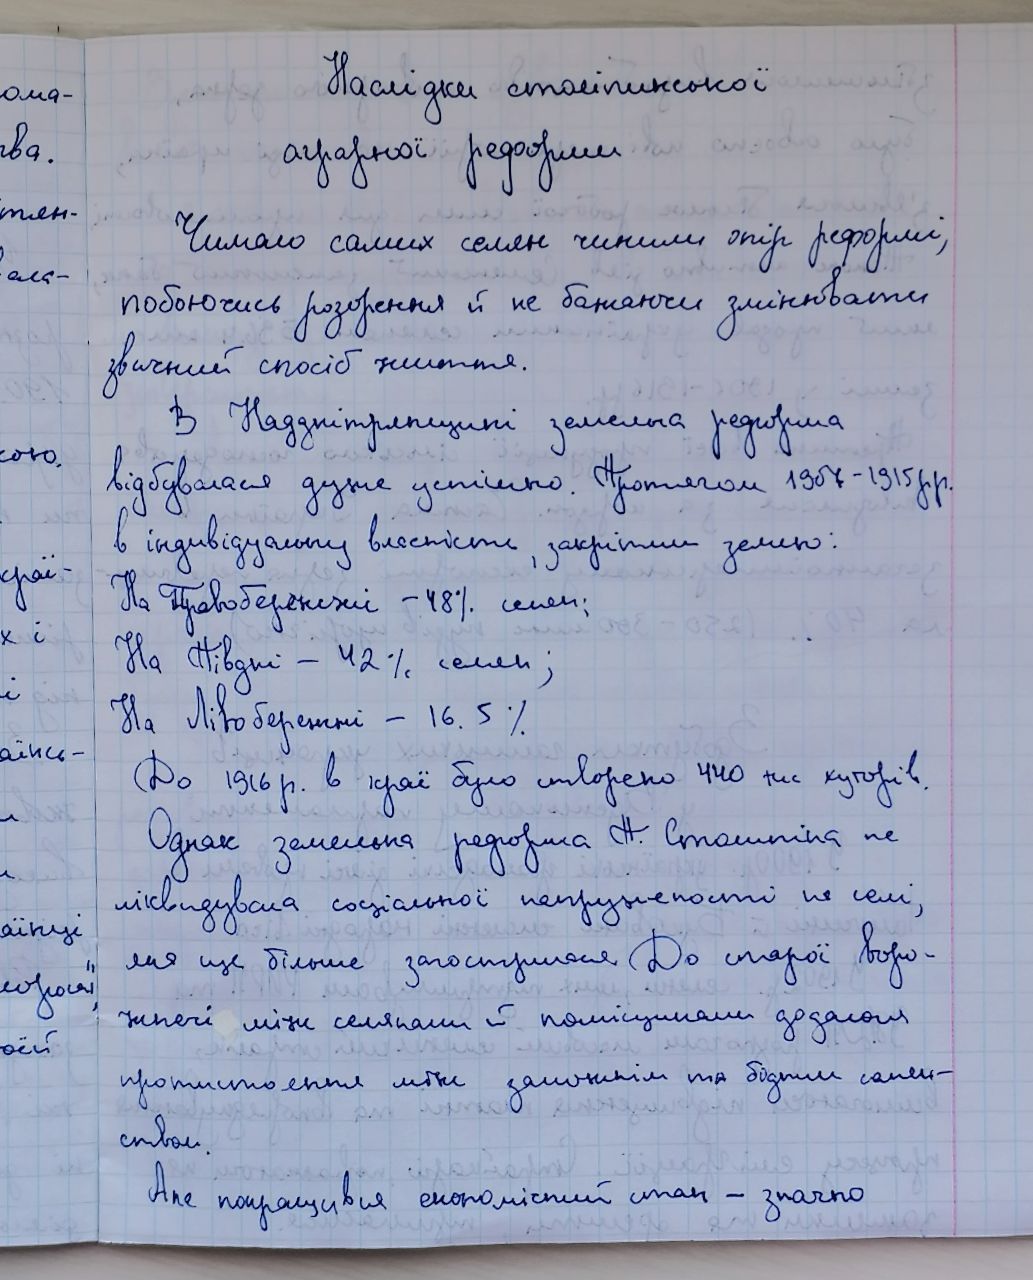 Наслідки століпинської
аграрної реформи
Чимало самих селян чинили опір реформі,
побоючись розорення й не бажаючи змінювати
звичний спосіб життя.
В Наддніпрянщині земельна реформа
відбувалася дуже успішно. Протягом 1907-1915р.р.
в індивідуальну власність закріпили землю:
На Правобережжі - 48% селян;
На Півдні - 42% селян;
На Лівобережжі - 16.5%
До 1916р. в краї було створено 440 тис хуторів.
Однак земельна реформа П. Столипіна не
ліквідувала соціальної напруженості на селі,
яка ще більше загострилася. До старої воро-
жнечі між селянами й поміщиками додалося
протистояння між заможнім та бідним селян-
ством.
Але покращився економічний стан - значно
ома-
тва.
тян-
ала-
кою.
краї-
х і
і
аїнсь-
аїнці
оєї